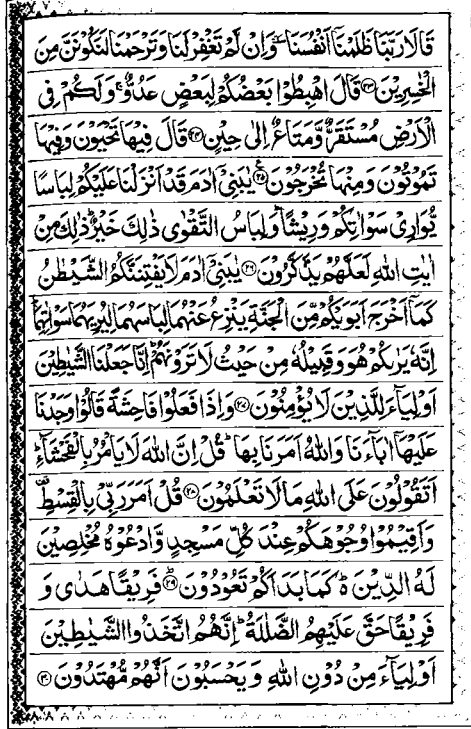 قَالَا رَبَّنَا ظَلَمْنَآ اَنْفُسَنَا ۫ وَاِنْ لَّمْ تَغْفِرْ لَنَا وَتَرْحَمْنَا لَنَكُوْنَنَّ مِنَ
الْخٰسِرِيْنَ ۝۲۳ قَالَ اهْبِطُوْا بَعْضُكُمْ لِبَعْضٍ عَدُوٌّ ۚ وَلَكُمْ فِى
الْاَرْضِ مُسْتَقَرٌّ وَّمَتَاعٌ اِلٰى حِيْنٍ ۝۲۴ قَالَ فِيْهَا تَحْيَوْنَ وَفِيْهَا
تَمُوْتُوْنَ وَمِنْهَا تُخْرَجُوْنَ ۝۲۵ يٰبَنِىْٓ اٰدَمَ قَدْ اَنْزَلْنَا عَلَيْكُمْ لِبَاسًا
يُّوَارِىْ سَوْاٰتِكُمْ وَرِيْشًا ؕ وَلِبَاسُ التَّقْوٰى ذٰلِكَ خَيْرٌ ؕ ذٰلِكَ مِنْ
اٰيٰتِ اللّٰهِ لَعَلَّهُمْ يَذَّكَّرُوْنَ ۝۲۶ يٰبَنِىْٓ اٰدَمَ لَا يَفْتِنَنَّكُمُ الشَّيْطٰنُ
كَمَآ اَخْرَجَ اَبَوَيْكُمْ مِّنَ الْجَنَّةِ يَنْزِعُ عَنْهُمَا لِبَاسَهُمَا لِيُرِيَهُمَا سَوْاٰتِهِمَا ؕ
اِنَّهٗ يَرٰىكُمْ هُوَ وَقَبِيْلُهٗ مِنْ حَيْثُ لَا تَرَوْنَهُمْ ؕ اِنَّا جَعَلْنَا الشَّيٰطِيْنَ
اَوْلِيَآءَ لِلَّذِيْنَ لَا يُؤْمِنُوْنَ ۝۲۷ وَاِذَا فَعَلُوْا فَاحِشَةً قَالُوْا وَجَدْنَا
عَلَيْهَآ اٰبَآءَنَا وَاللّٰهُ اَمَرَنَا بِهَا ؕ قُلْ اِنَّ اللّٰهَ لَا يَاْمُرُ بِالْفَحْشَآءِ ؕ
اَتَقُوْلُوْنَ عَلَى اللّٰهِ مَا لَا تَعْلَمُوْنَ ۝۲۸ قُلْ اَمَرَ رَبِّىْ بِالْقِسْطِ ۟
وَاَقِيْمُوْا وُجُوْهَكُمْ عِنْدَ كُلِّ مَسْجِدٍ وَّادْعُوْهُ مُخْلِصِيْنَ
لَهُ الدِّيْنَ ؕ۬ كَمَا بَدَاَكُمْ تَعُوْدُوْنَ ۝۲۹ فَرِيْقًا هَدٰى وَ
فَرِيْقًا حَقَّ عَلَيْهِمُ الضَّلٰلَةُ ؕ اِنَّهُمُ اتَّخَذُوا الشَّيٰطِيْنَ
اَوْلِيَآءَ مِنْ دُوْنِ اللّٰهِ وَيَحْسَبُوْنَ اَنَّهُمْ مُّهْتَدُوْنَ ۝۳۰